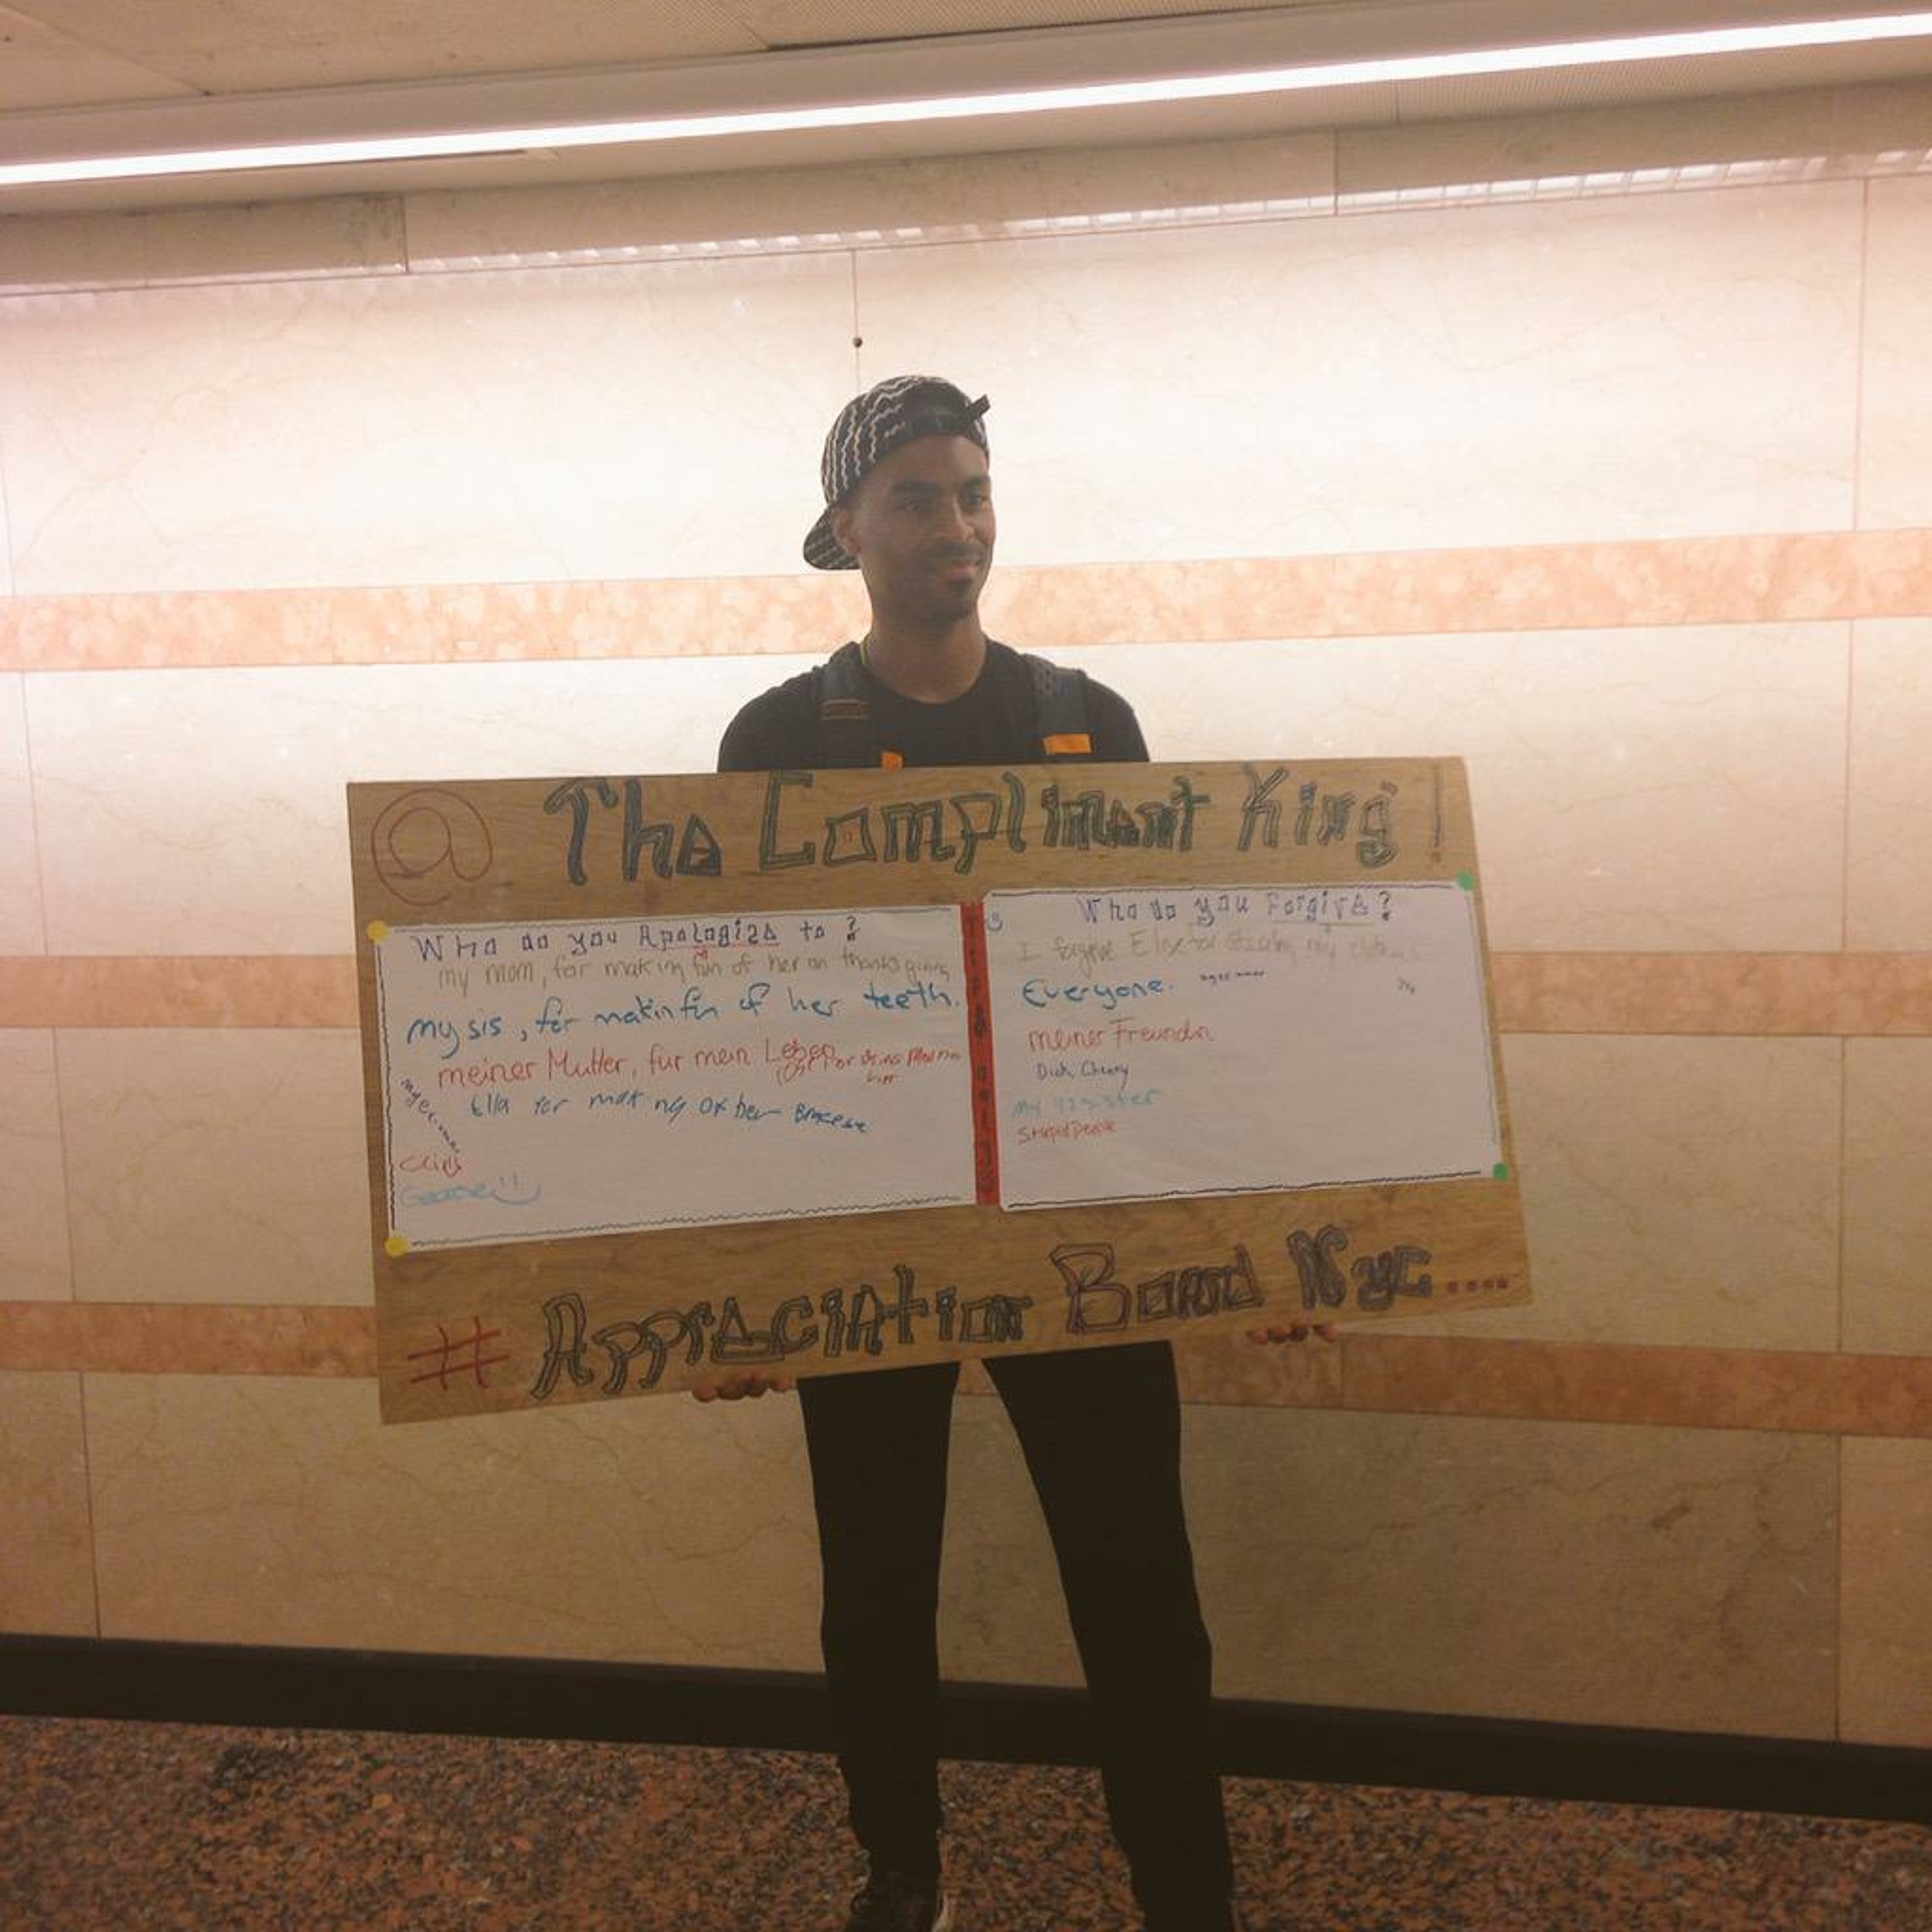 @ The Compliment King!
Who do you Apologize to ?
my mom, for making fun of her on thanksgiving
my sis, for makin fun of her teeth.
meiner Mutter, für mein Leben
Ella for making of her Braces
Who do you Forgive?
I forgive
Everyone.
meiner Freundin
Dick Cheany
My sister
Stupid people
# Appreciation Board Nyc....